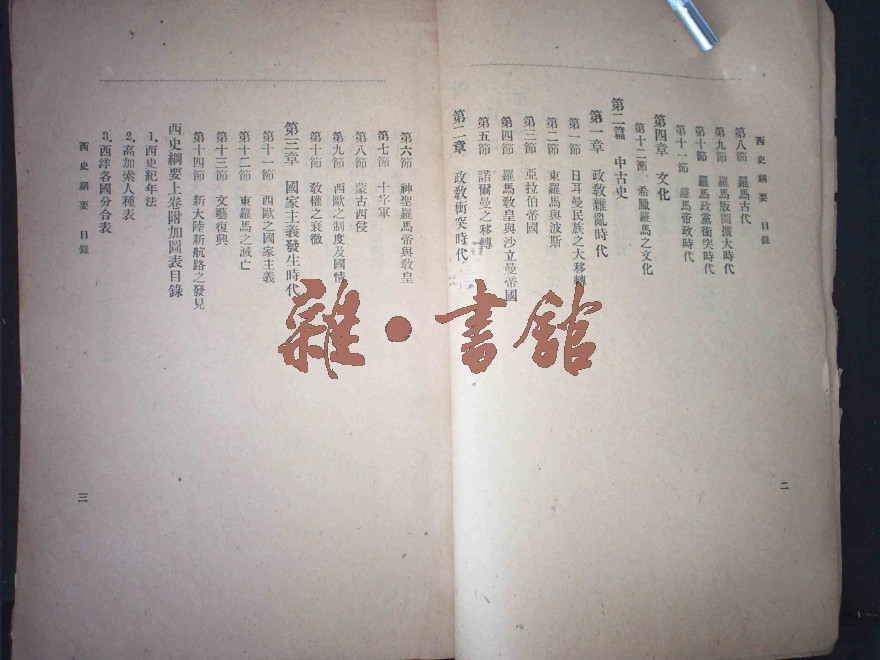 西史綱要 目錄
第八節 羅馬古代
第九節 羅馬版圖擴大時代
第十節 羅馬政黨衝突時代
第十一節 羅馬帝政時代
第四章 文化
第十二節 希臘羅馬之文化
第二篇 中古史
第一章 政敎雜亂時代
第一節 日耳曼民族之大移轉
第二節 東羅馬與波斯
第三節 亞拉伯帝國
第四節 羅馬敎皇與沙立曼帝國
第五節 諾爾曼之移轉
第二章 政敎衝突時代
二
第六節 神聖羅馬帝與敎皇
第七節 十字軍
第八節 蒙古西侵
第九節 西歐之制度及國情
第十節 敎權之衰微
第三章 國家主義發生時代
第十一節 西歐之國家主義
第十二節 東羅馬之滅亡
第十三節 文藝復興
第十四節 新大陸新航路之發見
西史綱要上卷附加圖表目錄
1.西史紀年法
2.高加索人種表
3.西洋各國分合表
西史綱要 目錄
三
雜·書館